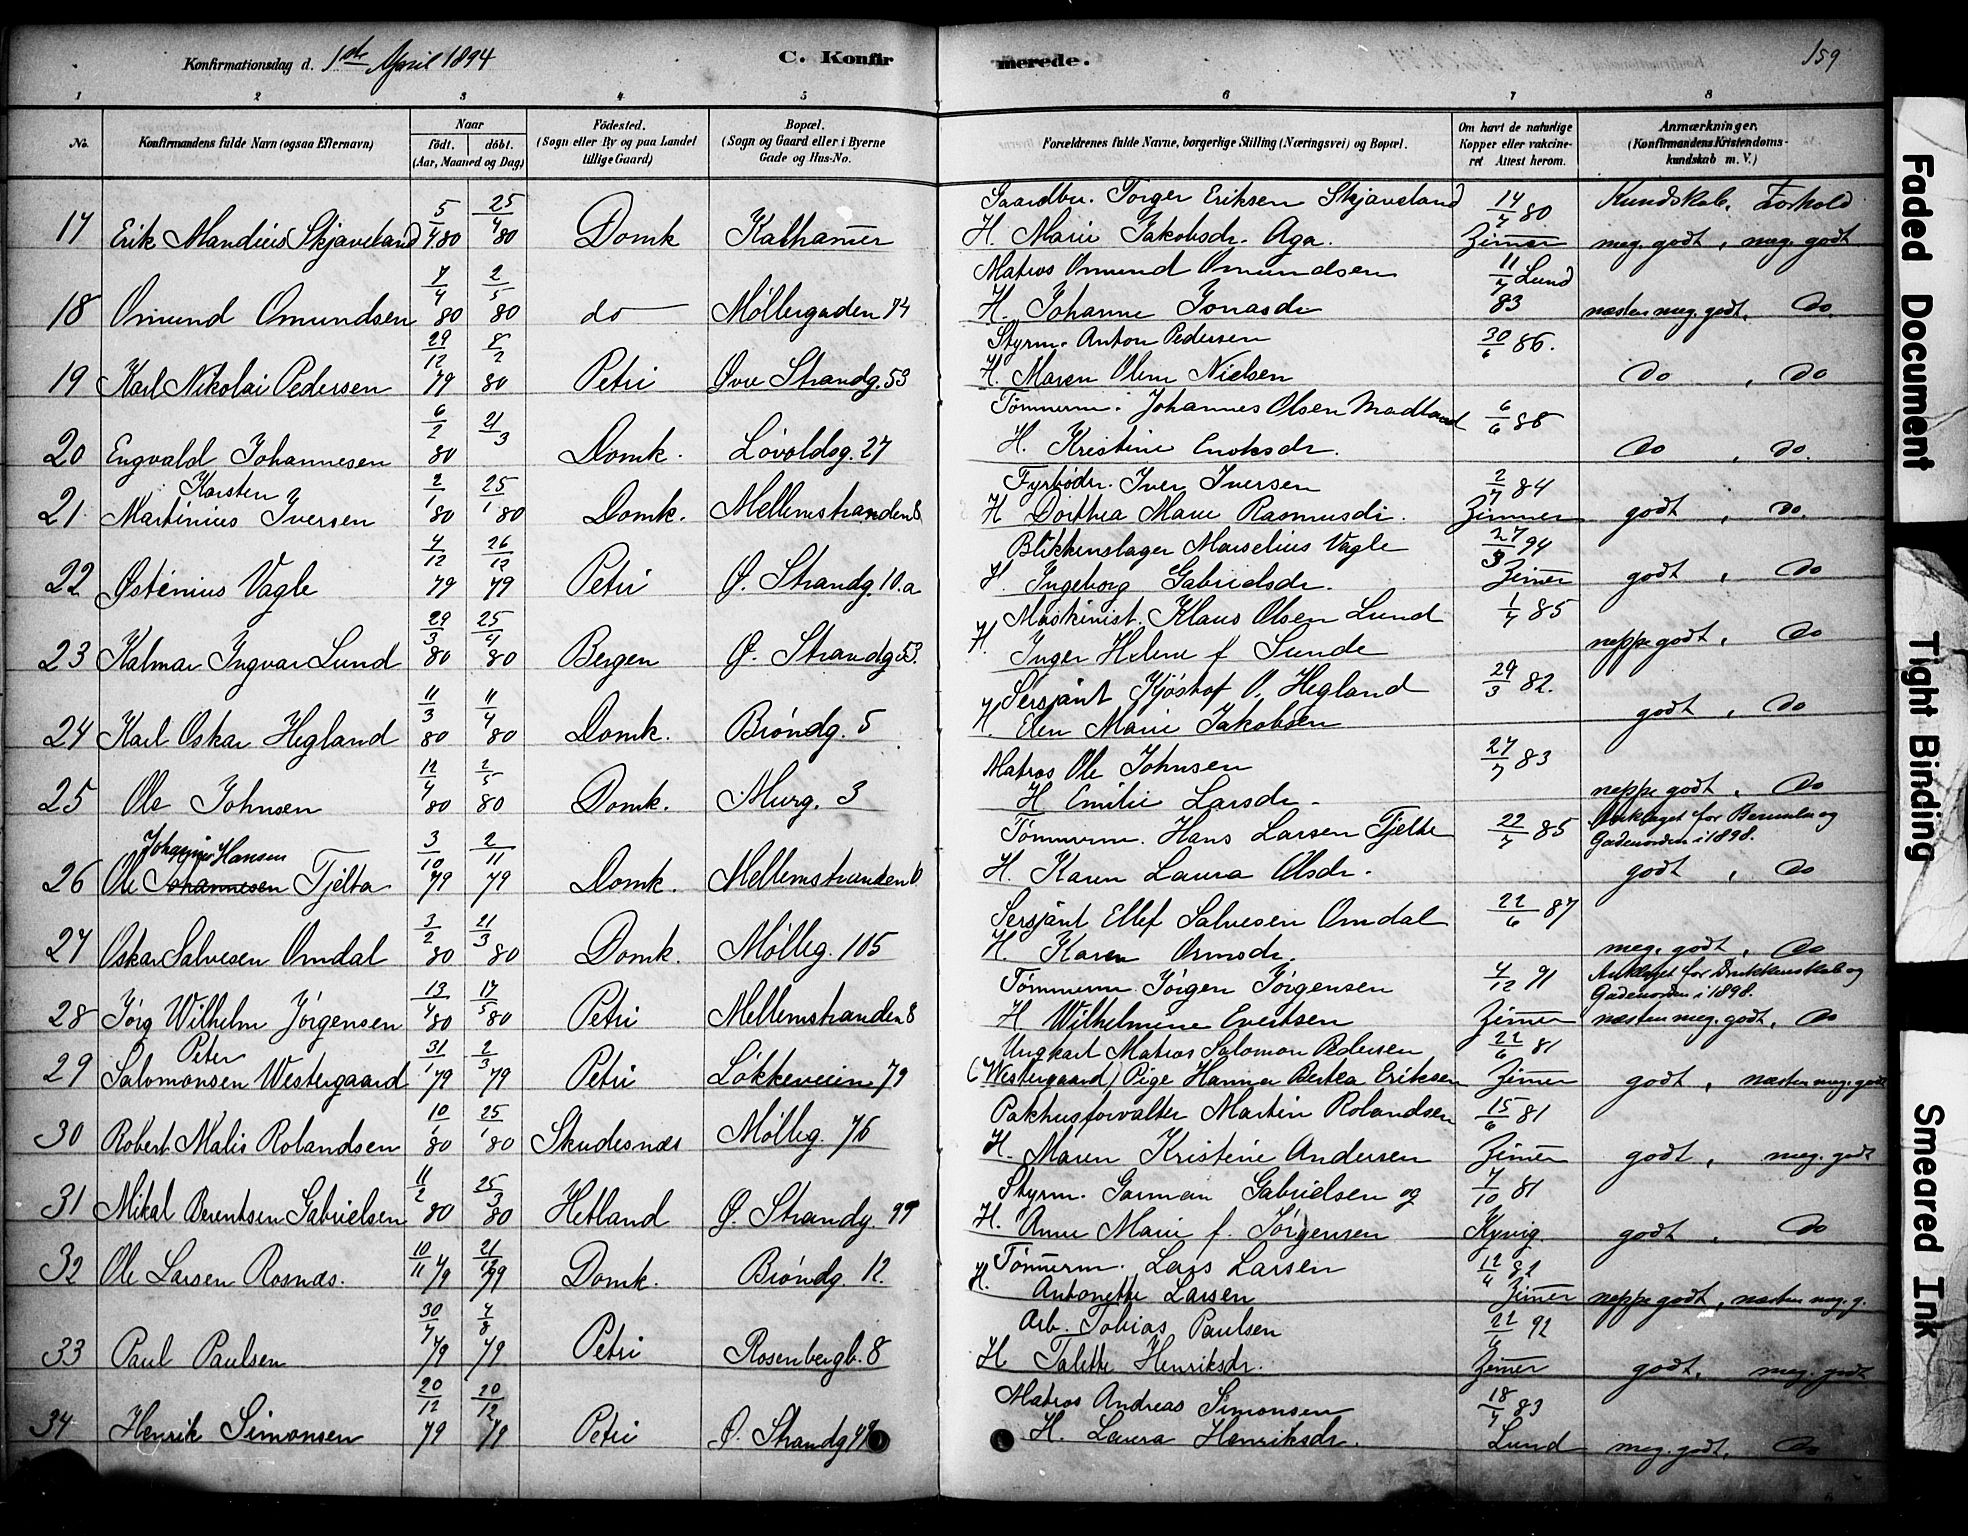 Konfirmationsdag d. 1ste April 1894 C. Konfirmerede. 159
1 2 3 4 5 6 7 8
No. Konfirmandens fulde Navn (ogsaa Efternavn) Naar født. døbt. (Aar, Maaned og Dag) Fødested. (Sogn eller By og paa Landet tillige Gaard) Bopæl. (Sogn og Gaard eller i Byerne Gade og Hus-No. Forældrenes fulde Navne, borgerlige Stilling (Næringsvei) og Bopæl. Om havt de naturlige Kopper eller vakcineret Attest herom. Anmærkninger. (Konfirmandens Kristendomskundskab m. V.)
Gaardbr. Torger Eriksen Skjæveland 14/7 80 Kundskab. Forhold
17 Erik Mandius Skjæveland 5/4 80 25/4 80 Domk Kathammer H. Marie Jakobsdr. Aga. Zimer meg. godt, meg. godt
Matros Omund Omundsen 11/7 Lund
18 Omund Omundsen 7/4 80 2/5 80 do Møllergaden 74 H. Johanne Jonasdr 83 næsten meg. godt, do
Styrm. Anton Pedersen 30/6 86.
19 Karl Nikolai Pedersen 29/12 79 8/2 80 Petri Øvre Strandg. 53 H. Maren Olene Nielsen do, do
Tømmerm. Johannes Olsen Madland 6/6 86
20 Engvald Johannesen 6/2 80 21/3 Domk. Løvoldsg. 27 H. Kristine Enoksdr. do, do.
Karsten Fyrbødr. Iver Iversen 2/7 84
21 Martinius Iversen 2/1 80 25/1 80 Domk. Mellemstranden 8 H Dorthea Marie Rasmusdr. Zimmer godt, do.
Blikkenslager Marselius Vagle 27/3 94
22 Østenius Vagle 4/12 79 26/12 79 Petri Ø. Strandg. 10.a H. Ingeborg Gabrielsdr. Zimer godt, do
Maskinist. Klaus Olsen Lund 1/7 85
23 Kalmar Ingvar Lund 29/3 80 25/4 80 Bergen Ø. Strandg 53. H. Inger Helene f Sunde neppe godt, do
Sersjant Kjøstof O. Hegland 29/3 82.
24 Karl Oskar Hegland 11/3 80 11/4 80 Domk. Brøndg. 5 H. Elen Marie Jakobsen godt, do
Matros Ole Johnsen 27/7 83
25 Ole Johnsen 12/4 80 2/5 80 Domk. Murg. 3 H Emilie Larsdr. neppe godt, do
Johannes Hansen Tømmerm. Hans Larsen Tjelta 22/7 85 Anklaget for Beruselse og Gadeuorden i 1898.
26 Ole Johannesen Tjelta 3/10 79 2/11 79 Domk. Mellemstranden 6 H. Karen Laura Olsdr. godt, do
Sersjant Ellef Salvesen Omdal 22/6 87
27 Oskar Salvesen Omdal 3/2 80 21/3 80 Domk. Mølleg. 105 H. Karen Ormsdr. meg. godt, do
Tømmerm. Jørgen Jørgensen 4/12 91 Anklaget for Drukkenskab og Gadeuorden i 1898.
28 Jørg Wilhelm Jørgensen 13/4 80 17/5 80 Petri Mellemstranden 8 H Wilhelmine Evertsen Zimer næsten meg. godt, do
Peter Ungkarl Matros Salomon Pedersen 22/6 81
29 Salomonsen Westergaard 31/1 79 2/3 79 Petri Løkkeveien 79 (Westergaard) Pige Hanna Bertea Eriksen Zimer godt, næsten meg. godt
Pakhusforvalter Martin Rolandsen 15/6 81
30 Robert Malis Rolandsen 10/1 80 25/1 80 Skudesnæs Mølleg. 76 H. Maren Kristine Andersen Zimer godt, meg. godt
Styrm. Gorman Gabrielsen og 7/10 81
31 Mikal Berentsen Gabrielsen 11/2 80 25/3 80 Hetland Ø. Strandg. 99 H. Anne Marie f. Jørgensen Kyvig. godt, do
Tømmerm. Lars Larsen 12/4 82
32 Ole Larsen Rosnæs. 10/11 79 21/12 79 Domk. Brøndg. 12. H. Antonette Larsen Zimer neppe godt, næsten meg. g.
Arb. Tobias Paulsen 22/6 92
33 Paul Paulsen 30/7 79 4/8 79 Petri Rosenbergb. 8 H Talette Henriksdr. Zimer godt, meg. godt
Matros Andreas Simonsen 18/7 83
34 Henrik Simonsen 20/12 79 20/12 79 Petri Ø. Strandg 49 H. Laura Henriksdr. Lund meg. godt, do
Faded Document
Tight Binding
Smeared Ink